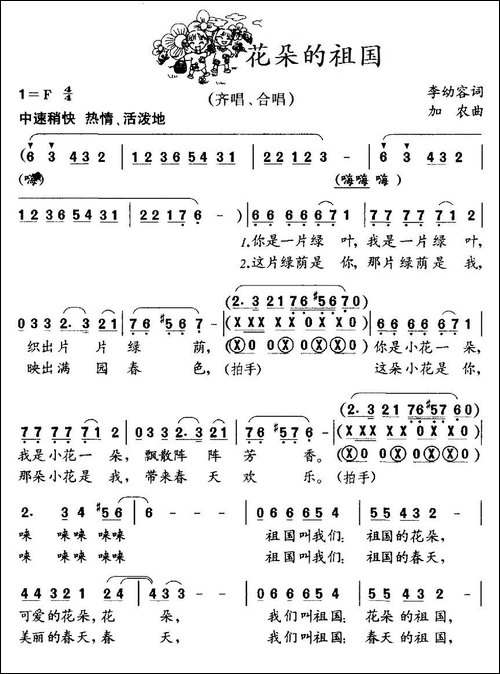 花朵的祖国
(齐唱、合唱)
1=F 4/4
李幼容词
中速稍快 热情、活泼地
加农曲
(6 3 432 | 1235431 | 22123 - | 6 3 432 |
(嗨 (嗨嗨 嗨)
1235431 | 22176 -) | 66 66671 | 77 77712 |
1.你是一片绿叶,我是一片绿叶,
2.这片绿荫是你,那片绿荫是我,
(2. 32176#5670)
0332.321 | 76#576 - | (XXX X0XXX0) | 66 66671 |
(Ⓧ0Ⓧ0Ⓧ0Ⓧ0)
织出片片绿荫, 你是小花一朵,
映出满园春色,(拍手) 这朵小花是你,
(2. 32176#5660)
77 77712 | 0332.321 | 76#576 - | (XXX X0XXX0) |
(Ⓧ0Ⓧ0Ⓧ0Ⓧ0)
我是小花一朵,飘散阵阵芳香。
那朵小花是我,带来春天欢乐。(拍手)
2. 34#56 | 6 - - - | 066654 | 55432 |
唻 唻唻唻唻 祖国叫我们:祖国的花朵,
唻 唻唻唻唻 祖国叫我们:祖国的春天,
44321 | 2224 | 2 - - - | 066654 | 55432 |
可爱的花朵,花朵, 我们叫祖国:花朵的祖国,
美丽的春天,春天, 我们叫祖国:春天的祖国,